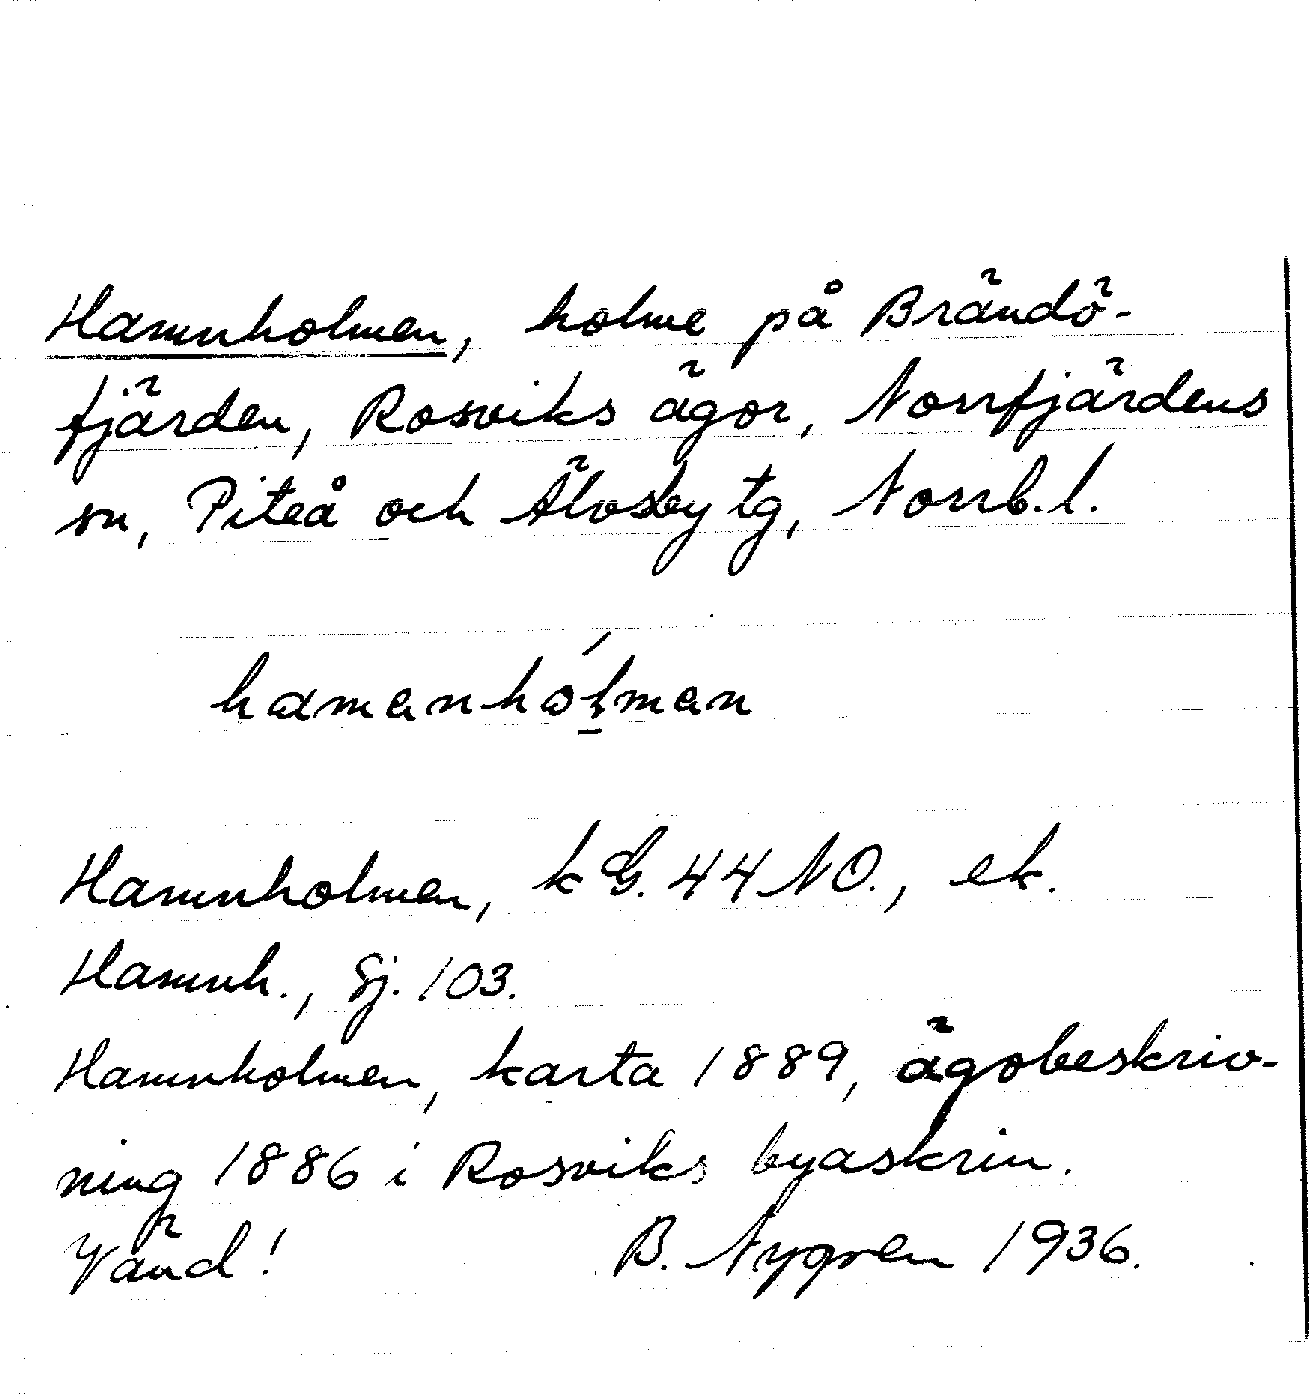 Hamnholmen, holme på Brändö-
fjärden, Rosviks ägor, Norrfjärdens
sn, Piteå och Älvsby tg, Norrb. l.
hamanhólman
Hamnholmen, k G. 44 NO., ek.
Hamnh., Sj. 103.
Hamnholmen, karta 1889, ägobeskriv-
ning 1886 i Rosviks byaskrin.
Vänd! B. Nygren 1936.